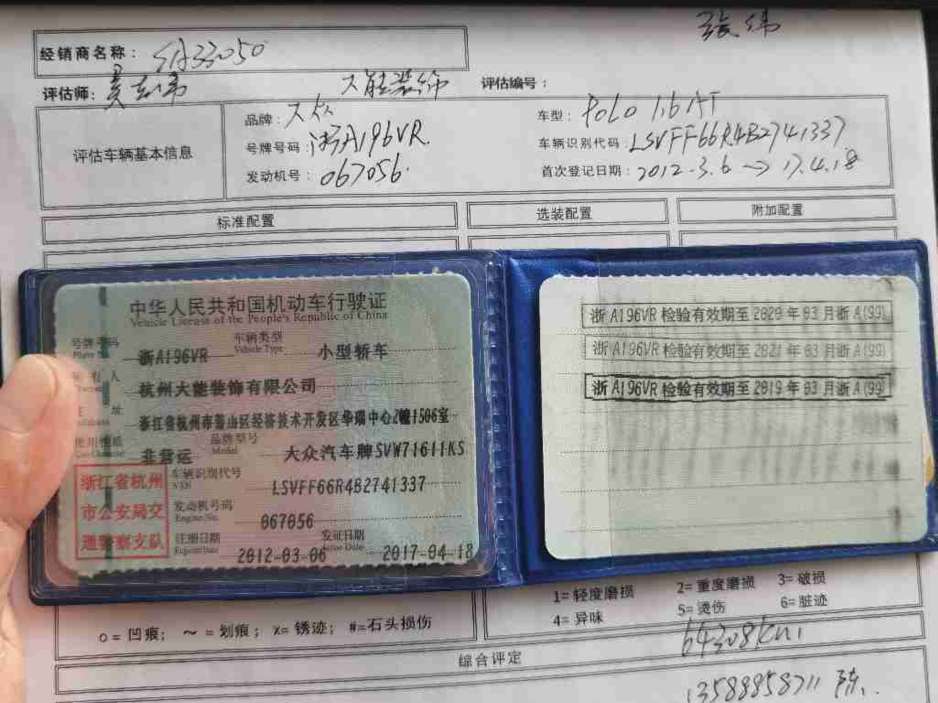 张伟
经销商名称：SA33050
评估师：
大能装饰
评估编号：
评估车辆基本信息
品牌：大众
车型：POLO 1.6 AT
号牌号码：浙A196VR
车辆识别代码：LSVFF66R4B2741337
发动机号：067056
首次登记日期：2012.3.6 → 17.4.18
标准配置
选装配置
附加配置
中华人民共和国机动车行驶证
Vehicle License of the People's Republic of China
号牌号码
浙A196VR
车辆类型
Vehicle Type
小型轿车
杭州大能装饰有限公司
浙江省杭州市萧山区经济技术开发区华瑞中心2幢1506室
使用性质
非营运
品牌型号
Model
大众汽车牌SVW71611KS
浙江省杭州
市公安局交
通警察支队
车辆识别代号
VIN
LSVFF66R4B2741337
发动机号码
Engine No.
067056
注册日期
2012-03-06
发证日期
Issue Date
2017-04-18
浙A196VR 检验有效期至 2020 年 03 月浙A(99)
浙A196VR 检验有效期至 2021 年 03 月浙A(99)
浙A196VR 检验有效期至 2019 年 03 月浙A(99)
o = 凹痕； ～ = 划痕； X= 锈迹； #=石头损伤
1= 轻度磨损
2= 重度磨损
3= 破损
4= 异味
5= 烫伤
6= 脏迹
综合评定
64308km
13588958711 陈